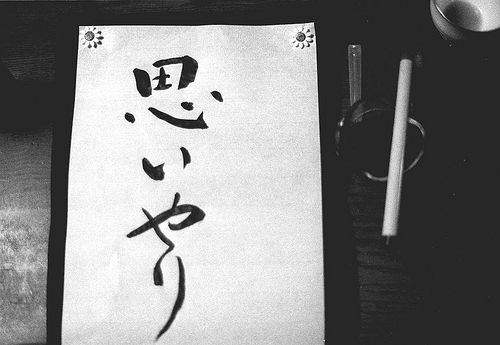 思いやり